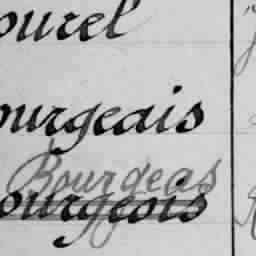 ourel
ourgeais
Bourgeas
ourgeois